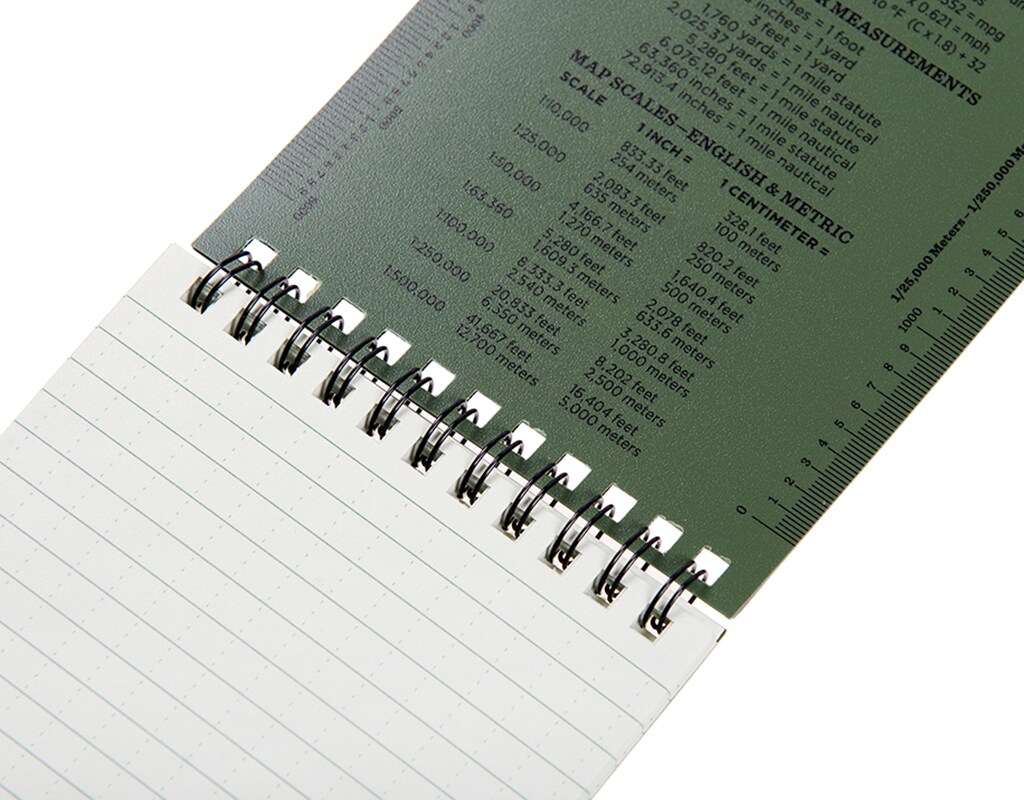 .352 = mpg
X 0.621 = mph
to °F (C x 1.8) + 32
R MEASUREMENTS
inches = 1 foot
3 feet = 1 yard
1,760 yards = 1 yard
2,025.37 yards = 1 mile statute
5,280 feet = 1 mile nautical
6,076.12 feet = 1 mile statute
63,360 inches = 1 mile nautical
72,913.4 inches = 1 mile statute
= 1 mile nautical
MAP SCALES—ENGLISH & METRIC
SCALE 1 INCH = 1 CENTIMETER =
1:10,000 833.33 feet 328.1 feet
254 meters 100 meters
1:25,000 2,083.3 feet 820.2 feet
635 meters 250 meters
1:50,000 4,166.7 feet 1,640.4 feet
1,270 meters 500 meters
1:63,360 5,280 feet 2,078 feet
1,609.3 meters 633.6 meters
1:100,000 8,333.3 feet 3,280.8 feet
2,540 meters 1,000 meters
1:250,000 20,833 feet 8,202 feet
6,350 meters 2,500 meters
1:500,000 41,667 feet 16,404 feet
12,700 meters 5,000 meters
1/25,000 Meters—1/250,000 M
6
5
4
3
2
1
1000
9
8
7
6
5
4
3
2
1
0
4000
5000
6000